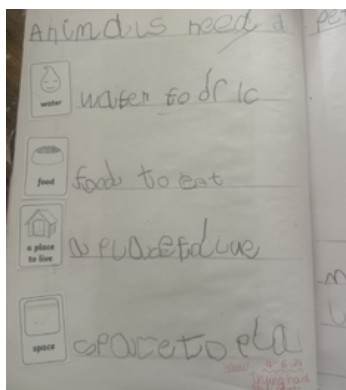 Animals need a pe
water
water to dric
food
food to eat
a place
to live
a placetolive
space
spacetopla
Trying hard